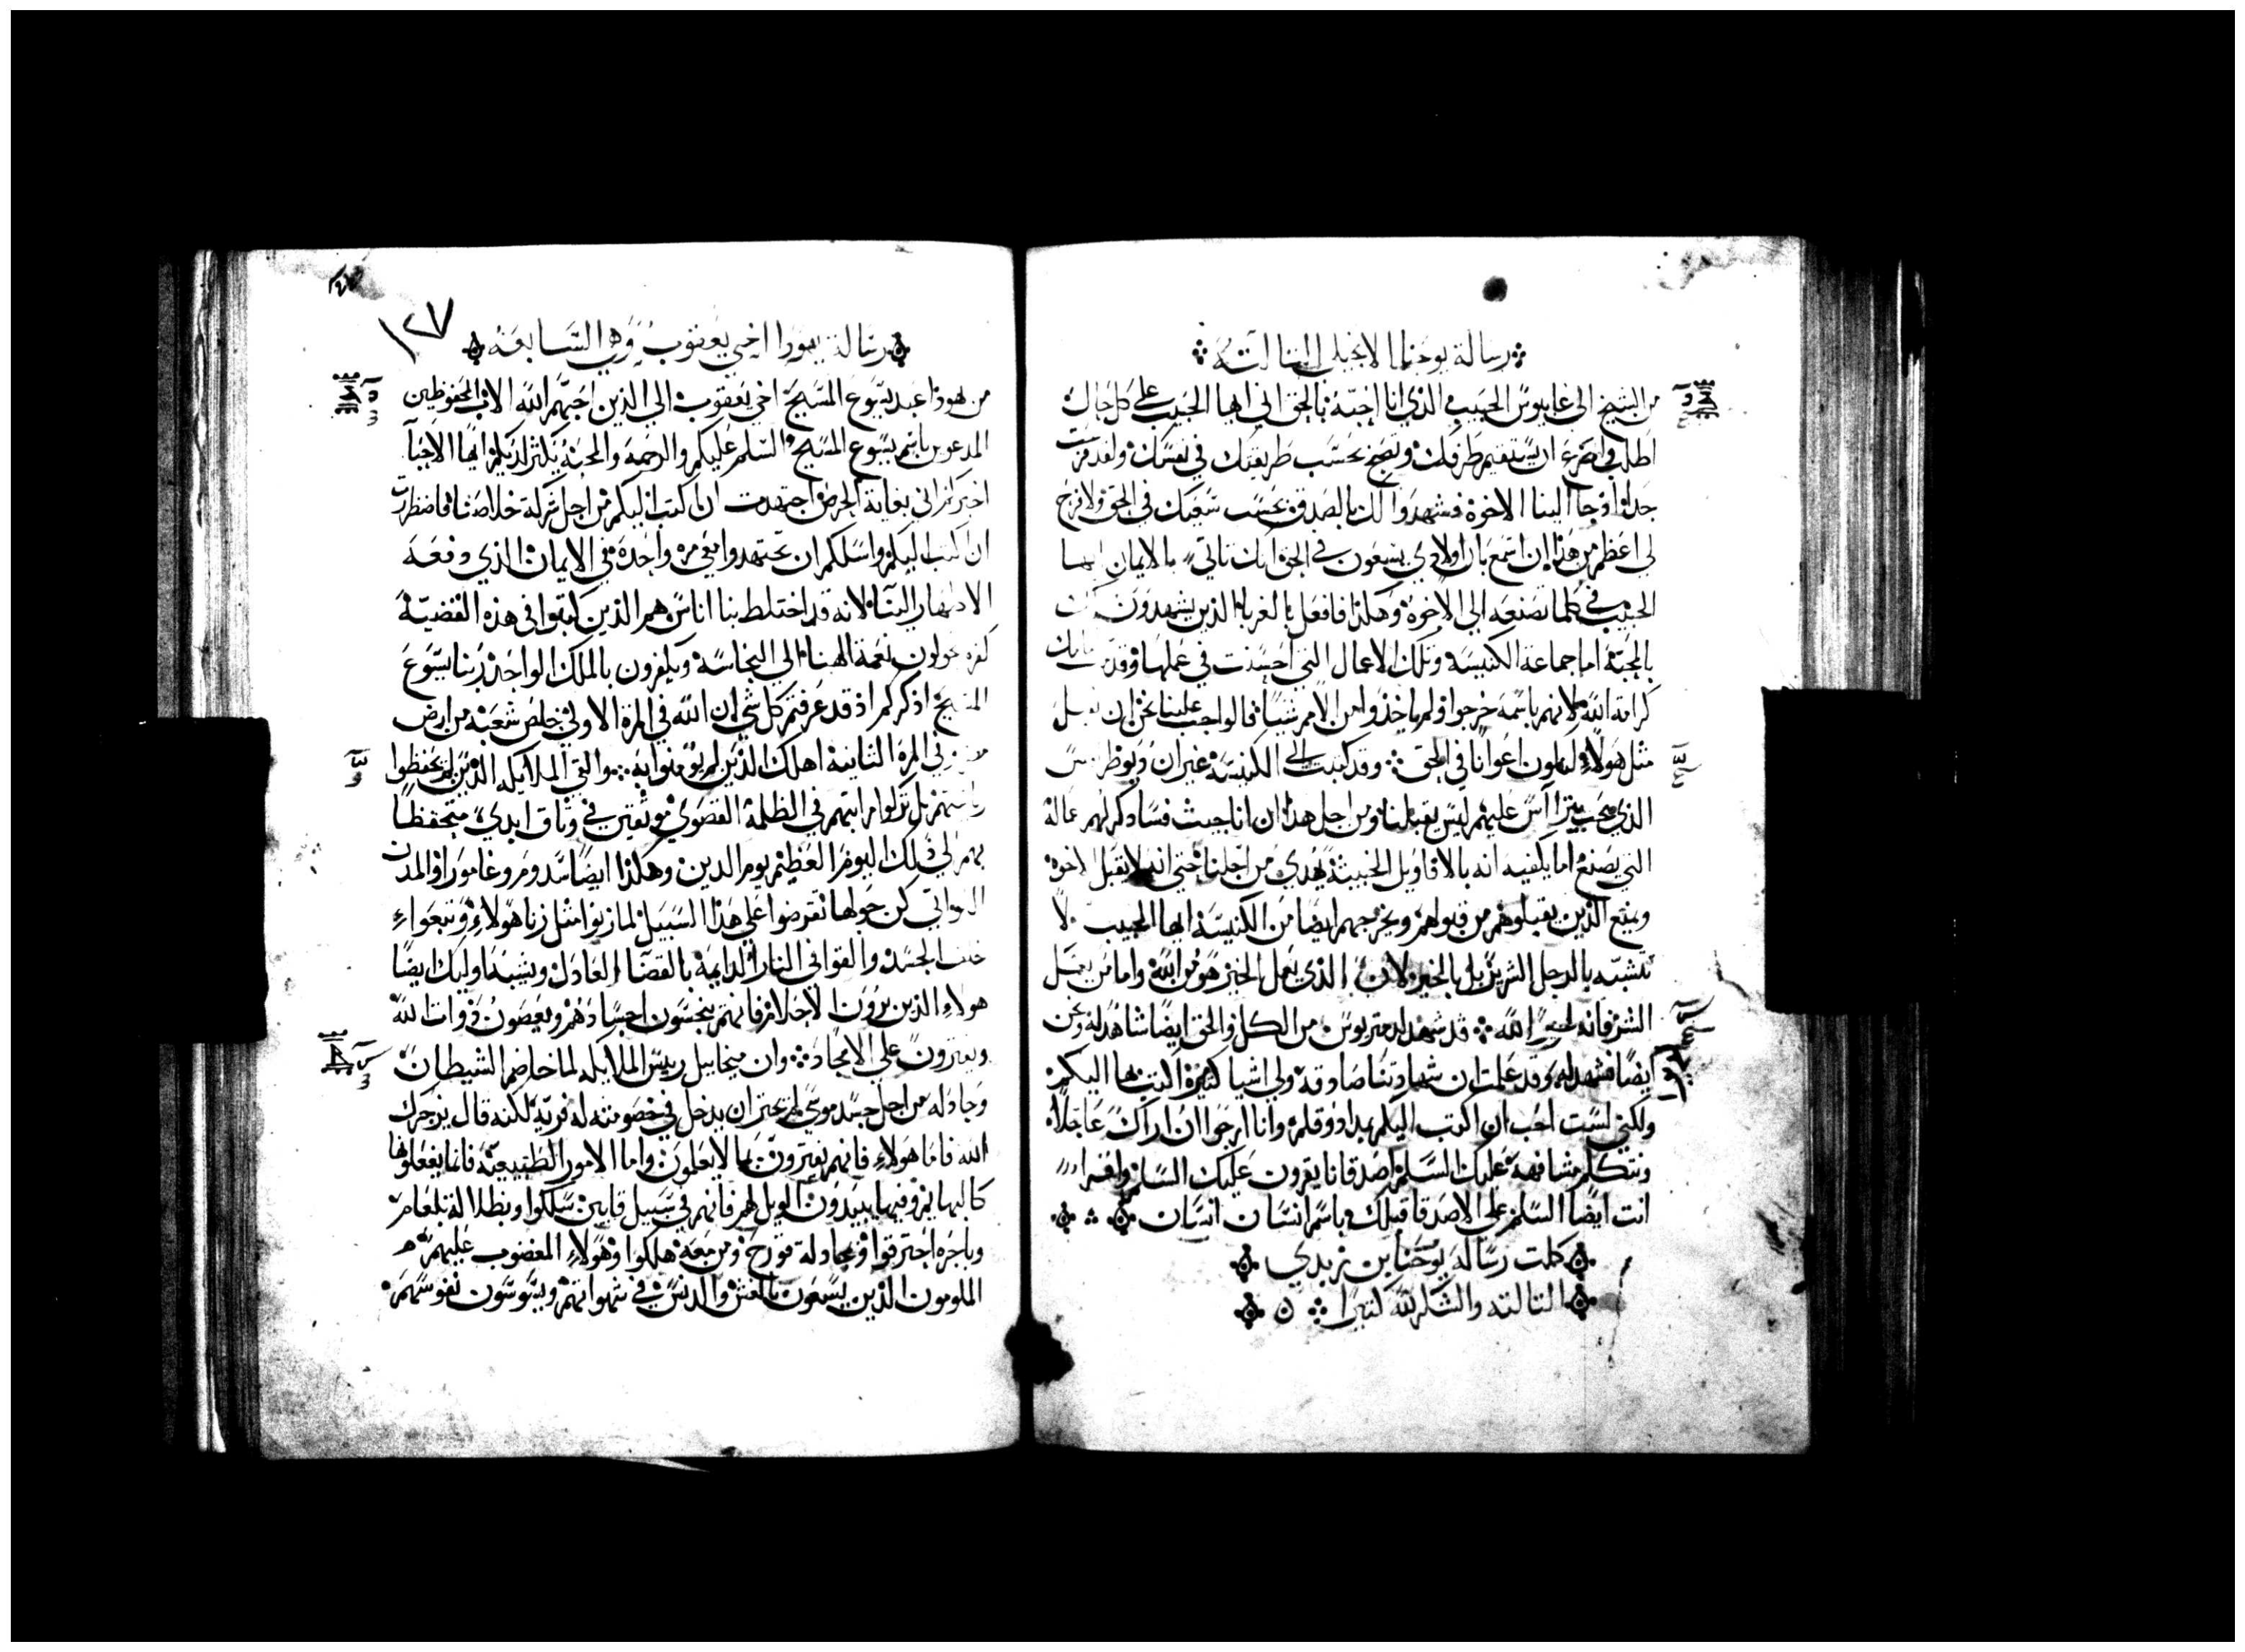 رساله يوحنا الانجيلي الثالثه
من الشيخ الى غايوس الحبيب الذي انا احبه بالحق اني ايها الحبيب على كل حال
اطلب واضرع ان يستقيم طرقك وتصح بحسب طريقتك في نفسك ولقد فرحت
جدا اذ جا الينا الاخوة فشهدوا لك بالصدق بحسب سعيك في الحق ولا فرح
لي اعظم من هذا ان اسمع بان اولادي يسعون في الحق انك تاتي بالايمان ايها
الحبيب في كلما تصنعه الى الاخوة وهكذا فافعل بالغربا الذين يشهدون لك
بالمحبة امام جماعة الكنيسة وتلك الاعمال التي احسنت في عملها وقد
كرامة الله لانهم باسمه خرجوا ولم ياخذوا من الامم شيا فالواجب علينا نحن ان نقبل
مثل هولاء لنكون اعوانا في الحق وقد كتبت الى الكنيسة غير ان ديوطرافس
الذي يحب يتراس عليهم ليس يقبلنا ومن اجل هذا ان انا جيت فساذكر لهم عماله
التي يصنع اما يكفيه انه بالاقاويل الخبيثة يهذي من اجلنا حتى انه لا يقبل الاخوة
ويمنع الذين يقبلوهم من قبولهم ويخرجهم ايضا من الكنيسة ايها الحبيب لا
تتشبه بالرجل الشرير بل بالخير لان الذي يعمل الخير هو من الله واما من يعمل
الشر فانه لم ير الله قد شهد لديمتريوس من الكل والحق ايضا شاهد له ونحن
ايضا فشهد له وقد علمت ان شهادتنا صادقة ولي اشيا كثيرة اكتب بها اليكم
ولكني لست احب ان اكتب اليكم بمداد وقلم وانا ارجوا ان اراك عاجلا
ونتكلم مشافهة عليك السلم اصدقانا يقرون عليك السلم واقرا
انت ايضا السلم على الاصدقا قبلك باسم انسان انسان
كملت رسالة يوحنا بن زبدي
الثالثه والشكر لله كثيرا
١٢٧
رسالة يهودا اخي يعقوب وهي السابعه
من يهوذا عبد يسوع المسيح اخي يعقوب الى الذين احبهم الله الاب المحفوظين
المدعوين باسم يسوع المسيح السلم عليكم والرحمة والمحبة يكثر لديكم ايها الاحبا
اخبركم اني بغاية الحرص اجتهدت ان اكتب اليكم من اجل شركة خلاصنا فاضطررت
ان اكتب اليكم واسلكم ان تجتهدوا في مرة واحدة في الايمان الذي دفعه
الاطهار الينا لانه قد اختلط بنا اناس هم الذين كتبوا في هذه القضيه
كفره يحولون نعمة الهنا الى النجاسة ويكفرون بالملك الواحد ربنا يسوع
المسيح اذكركم اذ قد عرفتم كل شي ان الله في المرة الاولى خلص شعبه من ارض
مصر وفي المرة الثانية اهلك الذين لم يومنوا به والتي الملايكه الذين لم يحفظوا
رياستهم بل تركوا مراتبهم في الظلمة القصوى موثقين في وثاق ابدي متحفظا
بهم الى ذلك اليوم العظيم يوم الدين وهكذا ايضا سدوم وغامورا والمدن
اللواتي كن حولها تقرضوا على هذا السبيل لما زنوا مثل زنا هولاء وتبعوا
خلف الجسد والقوا في النار الدايمة بالقضا العادل ويشبه اوليك ايضا
هولاء الذين يرون الاحلام فانهم ينجسون اجسادهم ويعصون ذوات الله
ويفترون على الامجاد وان ميخاييل رييس الملايكه لما خاصم الشيطان
وجادله من اجل جسد موسى لم يجتر ان يدخل في خصومته له فرية لكنه قال يزجرك
الله فاما هولاء فانهم يفترون بما لا يعلمون واما الامور الطبيعية فانما يفعلونها
كالبهايم وفيها يبيدون الويل لهم فانهم في سبيل قايين سلكوا وبضلالة بلعام
وباجره احترقوا وبمجادلة قورح ومن معه هلكوا وهولاء المغضوب عليهم
الملومون الذين يسعون بالغش والدنس في شهواتهم ويسوسون نفوسهم